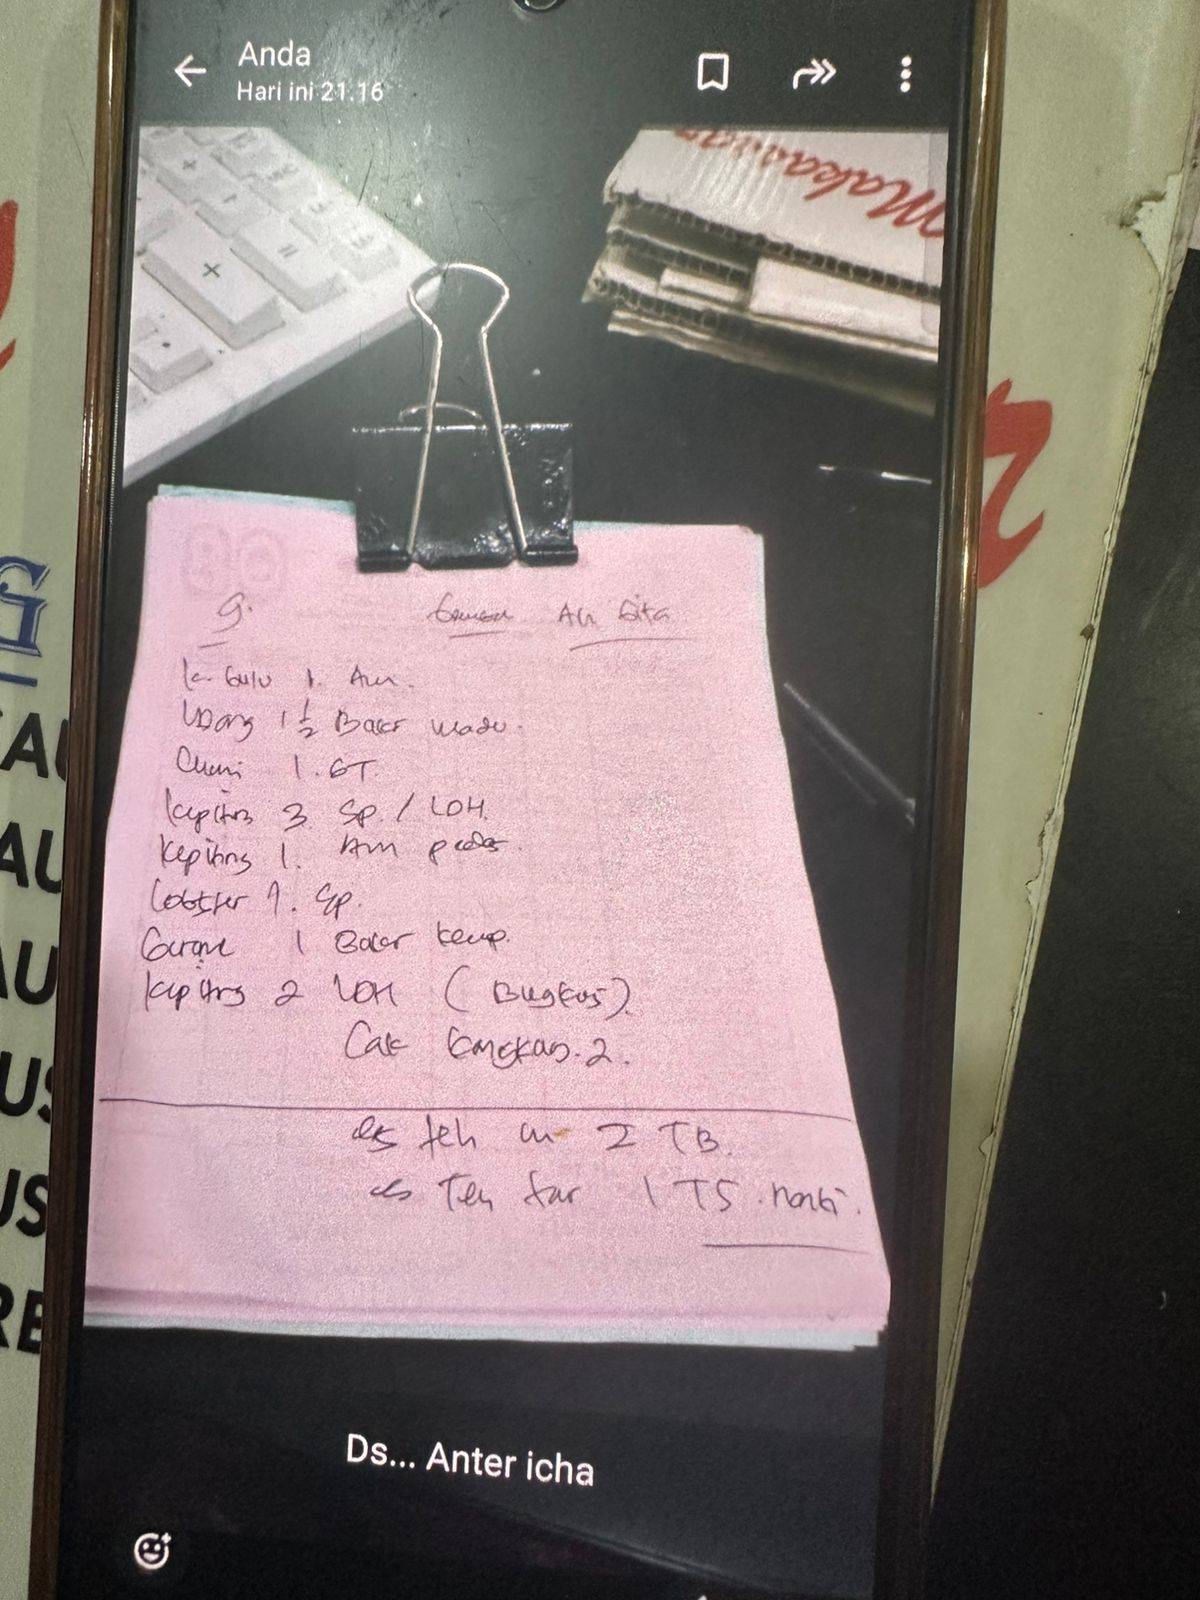 Anda
Hari ini 21.16
Makassar
9. Ah Gita
1 Am.
Udang 1 1/2 Bakar madu.
Cumi 1. GT.
kepiting 3 Sp. / LDH.
kepiting 1. Am pedas.
Lobster 1. Sp.
1 Bakar kecap.
kepiting 2 LDH (Bungkus).
Cak kangkung. 2.
es teh 2 TB.
es Teh 1 TS. nanti.
Ds... Anter icha
G
AU
AU
US
US
RE